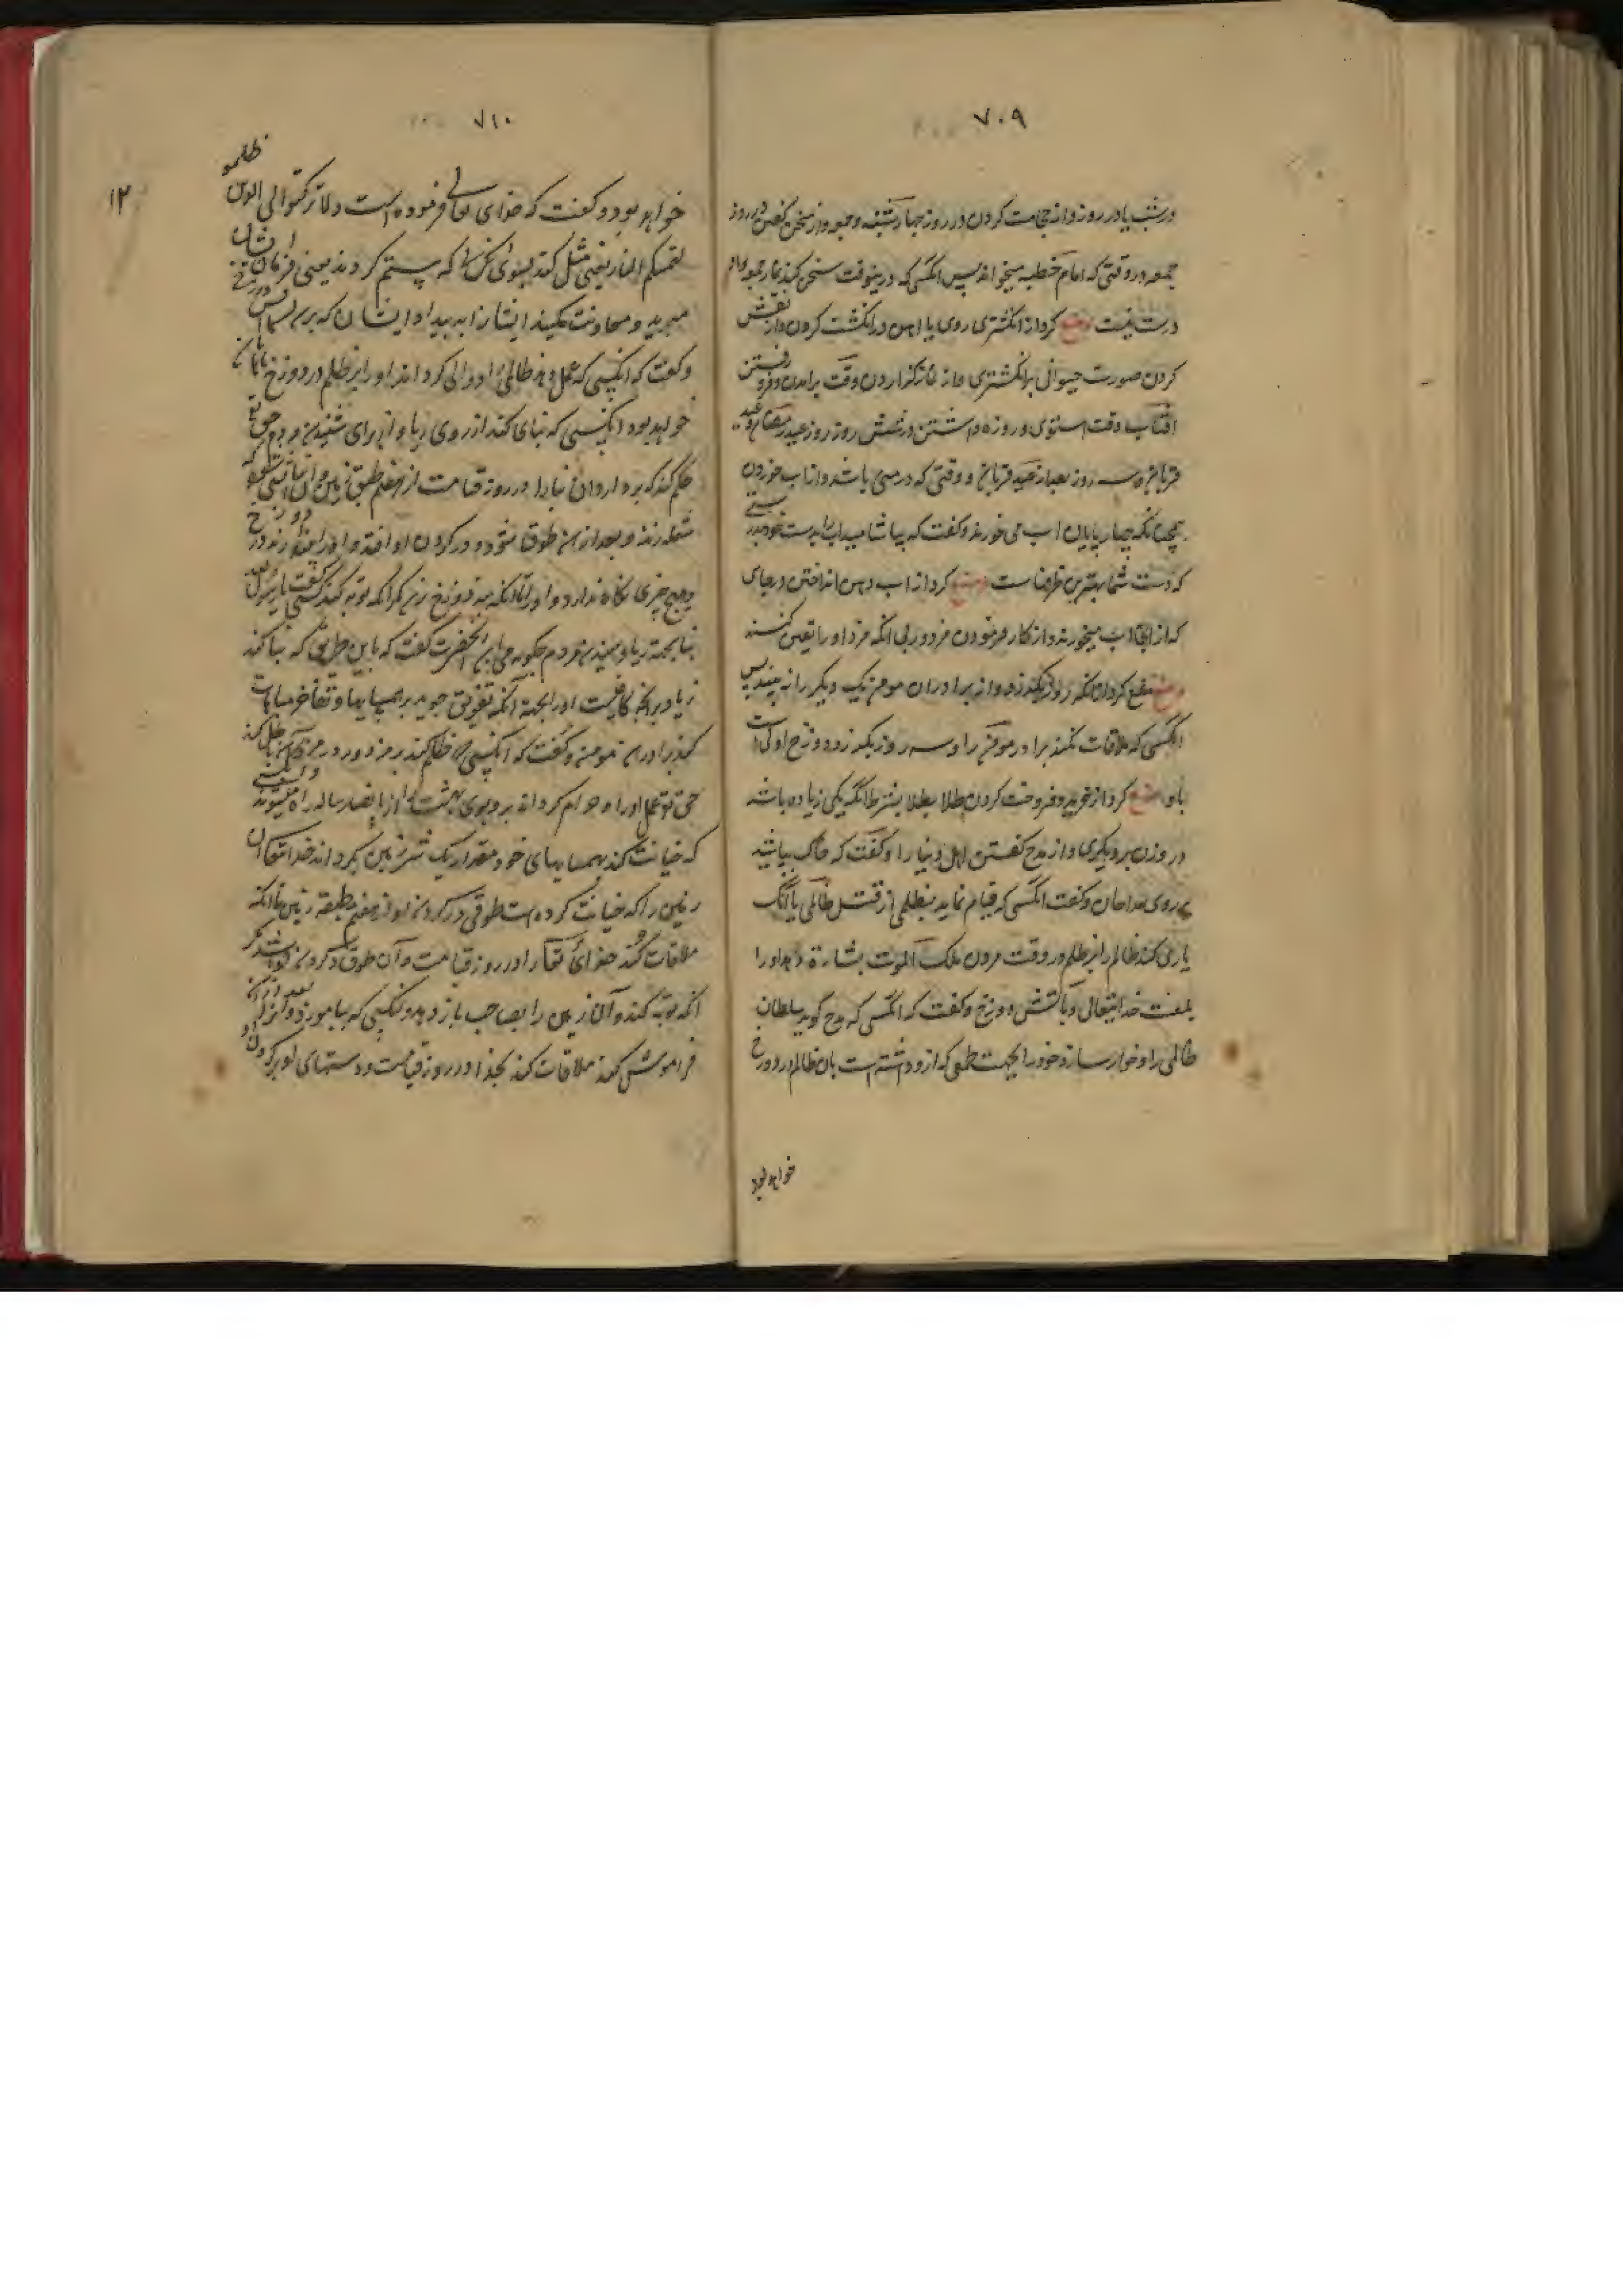 ۷۰۹
در شب یا در روز و از حجامت کردن در روز چهارشنبه و جمعه و از سخن کفتن در روز
جمعه در وقتی که امام خطبه میخواند پس انکسی که درینوقت سخن کند نماز جمعه او
درست نیست و منع کرد از انکشتری روی یا اهن در انکشت کردن و از نقش
کردن صورت حیوانی بر انکشتری و از نماز کزاردن وقت برامدن و فرو رفتن
افتاب و وقت استوی و روزه داشتن در شش روز روز عید رمضان و عید
قربان و سه روز بعد از عید قربان و وقتی که در منی باشد و از اب خوردن
همچنانکه چهارپایان اب می خورند و کفت که بیاشامید اب را بدست خود
که دست شما بهترین ظرفهاست و منع کرد از اب دهن انداختن در چاهی
که از انجا اب میخورند و از کار فرمودن مزدور بی انکه مزد او را تعین کنند
و منع کرد از انکه و از برادران مومن یک دیکر را نه بینند پس
انکسی که ملاقات نکند برادر مومن را و سه روز بکذرد دوزخ اولی است
باو و منع کرد از خرید و فروخت کردن طلا بطلا بشرط انکه یکی زیاده باشد
در وزن بر دیکری و از مدح کفتن اهل دنیا را و کفت که خاک بپاشید
بر روی مداحان و کفت انکسی که قیام نماید بظلمی از قبل ظالمی یا انک
یاری کند ظالم را بر ظلم در وقت مردن ملک الموت بشارة دهد او را
بلعنت خدایتعالی و باتش دوزخ و کفت که انکسی که مدح کوید سلطان
ظالمی را و خوار سازد خود را بجهت طمعی که ازو داشته است بان ظالم در دوزخ
خواهد بود
۷۱۰
۱۲
خواهد بود و کفت که خدای تعالی فرموده است و لا ترکنوا الی الذین ظلموا
فتمسکم النار یعنی میل مکنید بسوی کسانی که ستم کردند یعنی فرمان ایشان
مبرید و معاونت مکنید ایشانرا به بیداد ایشان که برسد بشما اتش دوزخ
و کفت که انکسی که عمل دهد ظالمی او را والی کرداند او را بر ظلم در دوزخ با هامان
خواهد بود و انکسی که بنای کند از روی ریا و از برای شنیدن مردم حق تعالی
حکم کند که بردارد ان بنا را در روز قیامت از هفتم طبق زمین و ان اتشی شود که
شعله زند و بعد از ان طوق شود و در کردن او افتد و او را بیندازند در دوزخ
و هیچ چیزی نکاه ندارد او را تا انکه بته دوزخ رسد مکر انکه توبه کند کسی کفت یا رسول الله
بنا بجهة ریا و شنیدن مردم چکونه می باشد انحضرت کفت که باین طریق که بنا کند
زیاده بر انچه کافیست او را بجهة انکه تفوق جوید بر همسایها و تفاخر و مباهات
کند بر برادران مومن و کفت که انکسی که ظلم کند بر مزدور در مزد او باطل کند
حق تعالی عمل او را و حرام کرداند برو بوی بهشت را و از پانصد ساله راه میشنوند و انکسی
که خیانت کند بهمسایهای خود مقدار یک شبر زمین بکرداند خدایتعالی ان
زمین را که خیانت کرده است طوقی در کردن او از هفتم طبقه زمین تا انکه
ملاقات کند خدای تعالی را در روز قیامت و آن طوق در کردن او باشد مکر
انکه توبه کند و آن زمین را بصاحب باز دهد و انکسی که بیاموزد قرآن و بعد از آن
فراموش کند ملاقات کند بخدا در روز قیامت و دستهای او بر کردن او